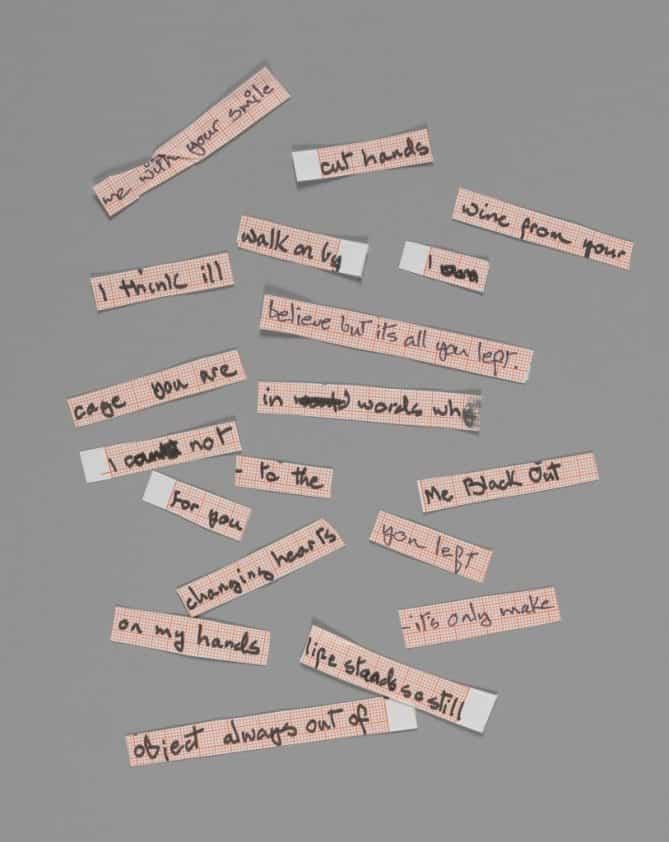 me with your smile
cut hands
wine from your
walk on by
I
I think ill
believe but it's all you left.
cage you are
in words wh
I not
- to the
Me Black Out
for you
you left
changing hearts
-it's only make
on my hands
life stands so still
object always out of